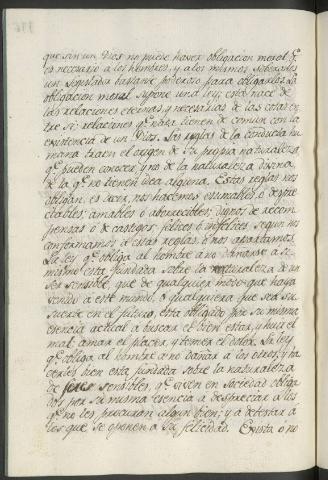 que sin un Dios no puede haver obligacion moral q.e
es necesario a los hombres, y a los mismos soberanos
un legislador bastante poderoso para obligarlos. La
obligacion moral supone una ley; esta nace de
las relaciones eternas, y necesarias de las cosas en-
tre si; relaciones q.e nada tienen de comun con la
existencia de un Dios. Las reglas de la conducta hu
mana traen el origen de su propia naturaleza
q.e pueden conocer, y no de la naturaleza divina
de la q.e no tienen idea alguna. Estas reglas nos
obligan, es decir, nos hacemos estimables, o despre
ciables; amables o aborrecibles; dignos de recom
pensas o de castigos, felices o infelices, segun nos
conformamos a estas reglas, o nos apartamos.
La ley q.e obliga al hombre a no dañarse a si
mismo esta fundada sobre la naturaleza de un
ser sensible, que de qualquier modo que haya
venido a este mundo, o qualquiera que sea su
suerte en el futuro, esta obligado por su misma
esencia actual a buscar el bien estar, y huir el
mal, amar el placer, y temer el dolor. La ley
q.e obliga al hombre a no dañar a los otros, y ha
cerles bien esta fundada sobre la naturaleza
de seres sensibles, q.e viven en Sociedad obliga
dos por su misma esencia a despreciar a los
q.e no les procuran algun bien; y a detestar a
los que se oponen a su felicidad. Exista o no